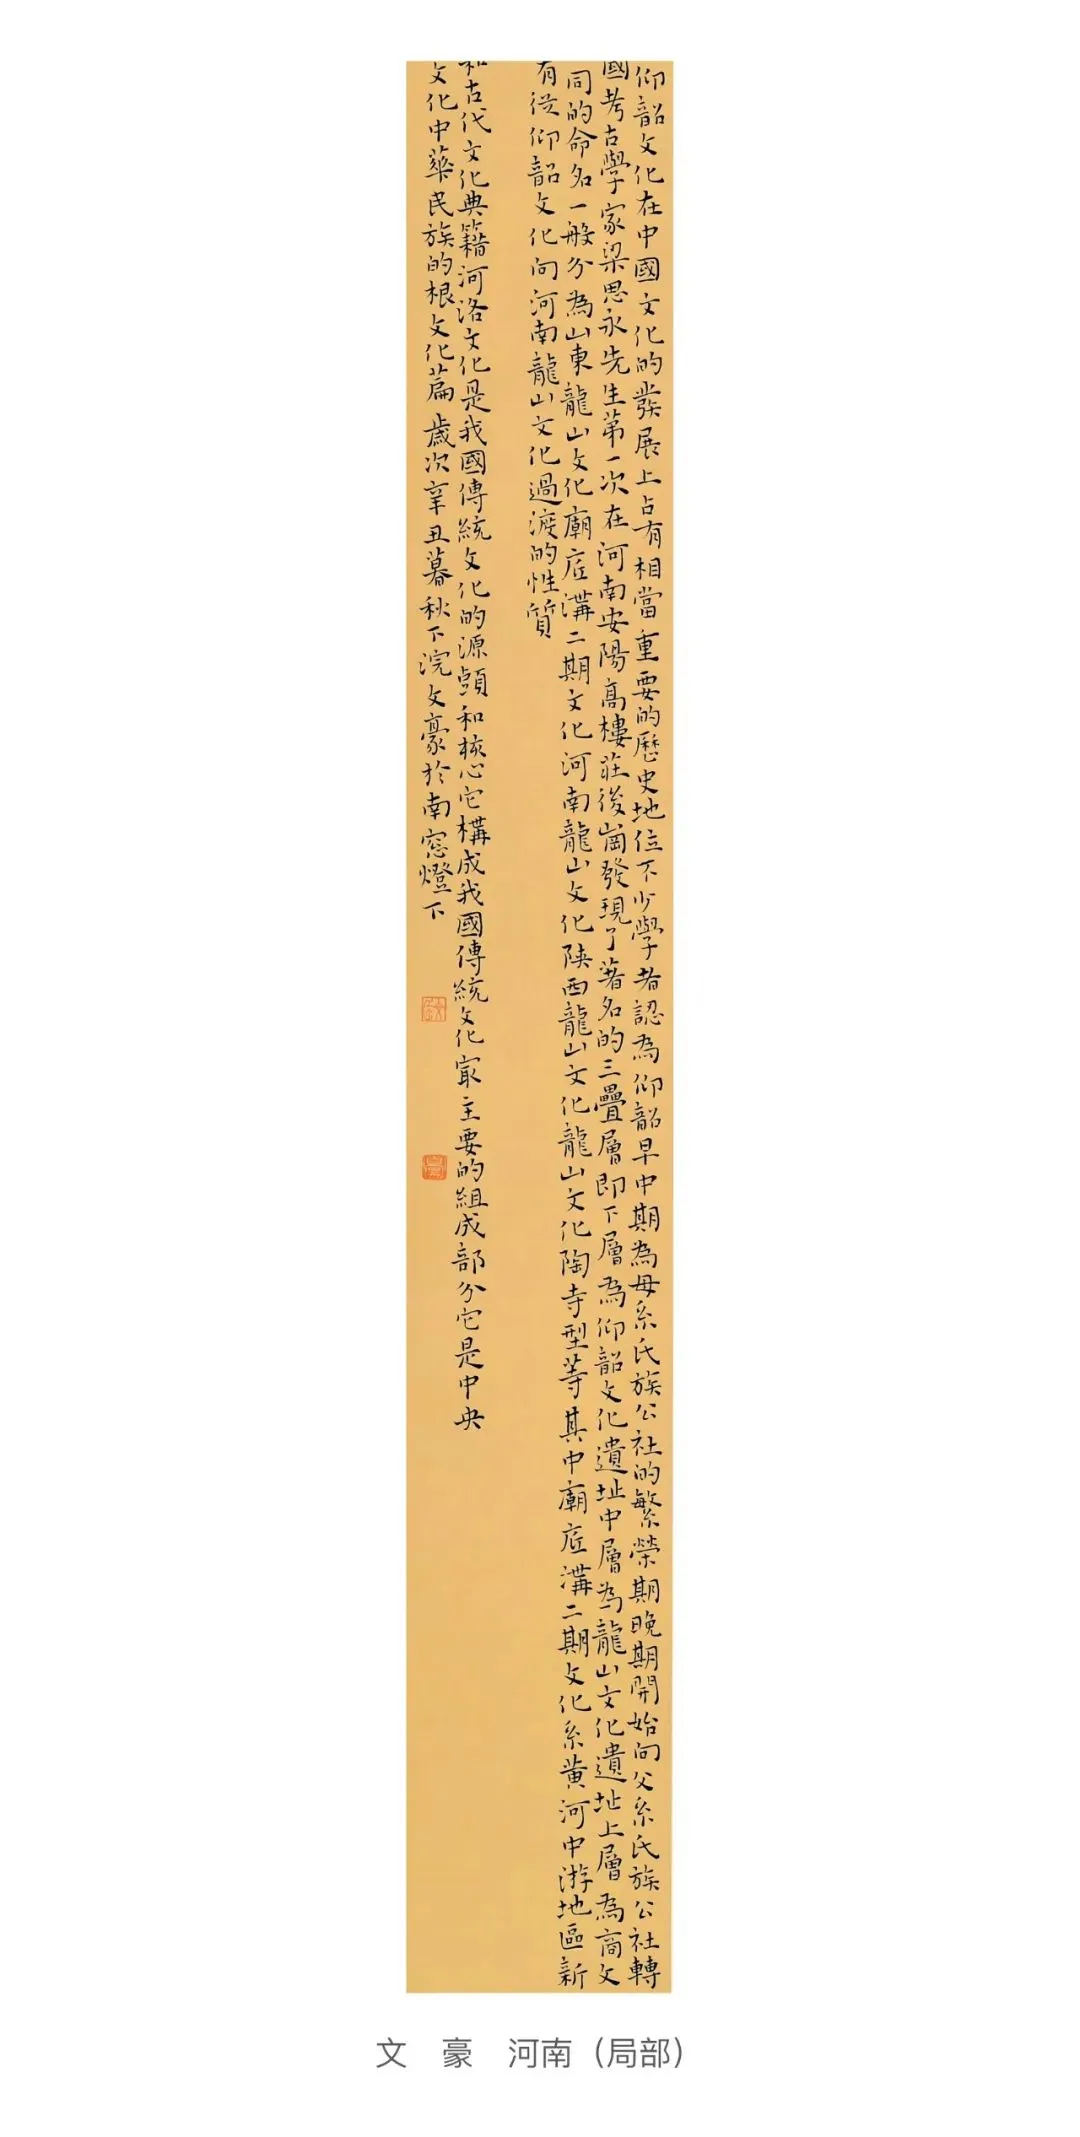 仰韶文化在中國文化的發展上占有相當重要的歷史地位不少學者認為仰韶早中期為母系氏族公社的繁榮期晚期開始向父系氏族公社轉
國考古學家梁思永先生第一次在河南安陽高樓莊後崗發現了著名的三疊層即下層為仰韶文化遺址中層為龍山文化遺址上層為商文
同的命名一般分為山東龍山文化廟底溝二期文化河南龍山文化陝西龍山文化龍山文化陶寺型等其中廟底溝二期文化系黃河中游地區新
有從仰韶文化向河南龍山文化過渡的性質
和古代文化典籍河洛文化是我國傳統文化的源頭和核心它構成我國傳統文化冣主要的組成部分它是中央
文化中華民族的根文化篇 歲次辛丑暮秋下浣文豪於南窓燈下
文　豪　河南（局部）